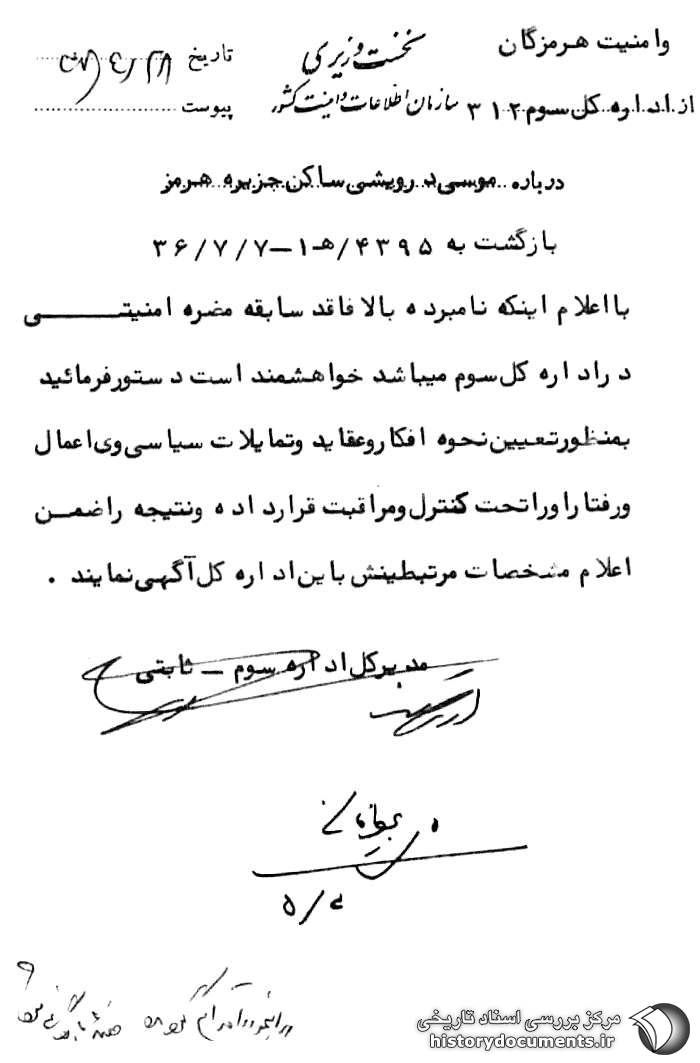 وامنیت هرمزگان
نخست وزیری
تاریخ
از اداره کل سوم ۳۱۲
سازمان اطلاعات وامنیت کشور
پیوست
درباره موسی درویشی ساکن جزیره هرمز
بازگشت به ۴۳۹۵/هـ۱-۳۶/۷/۷
بااعلام اینکه نامبرده بالا فاقد سابقه مضره امنیتی
در اداره کل سوم میباشد خواهشمند است دستور فرمائید
بمنظور تعیین نحوه افکار وعقاید وتمایلات سیاسی وی اعمال
ورفتار او را تحت کنترل ومراقبت قرار داده ونتیجه را ضمن
اعلام مشخصات مرتبطینش باین اداره کل آگهی نمایند .
مدیرکل اداره سوم - ثابتی
مرکز بررسی اسناد تاریخی
historydocuments.ir